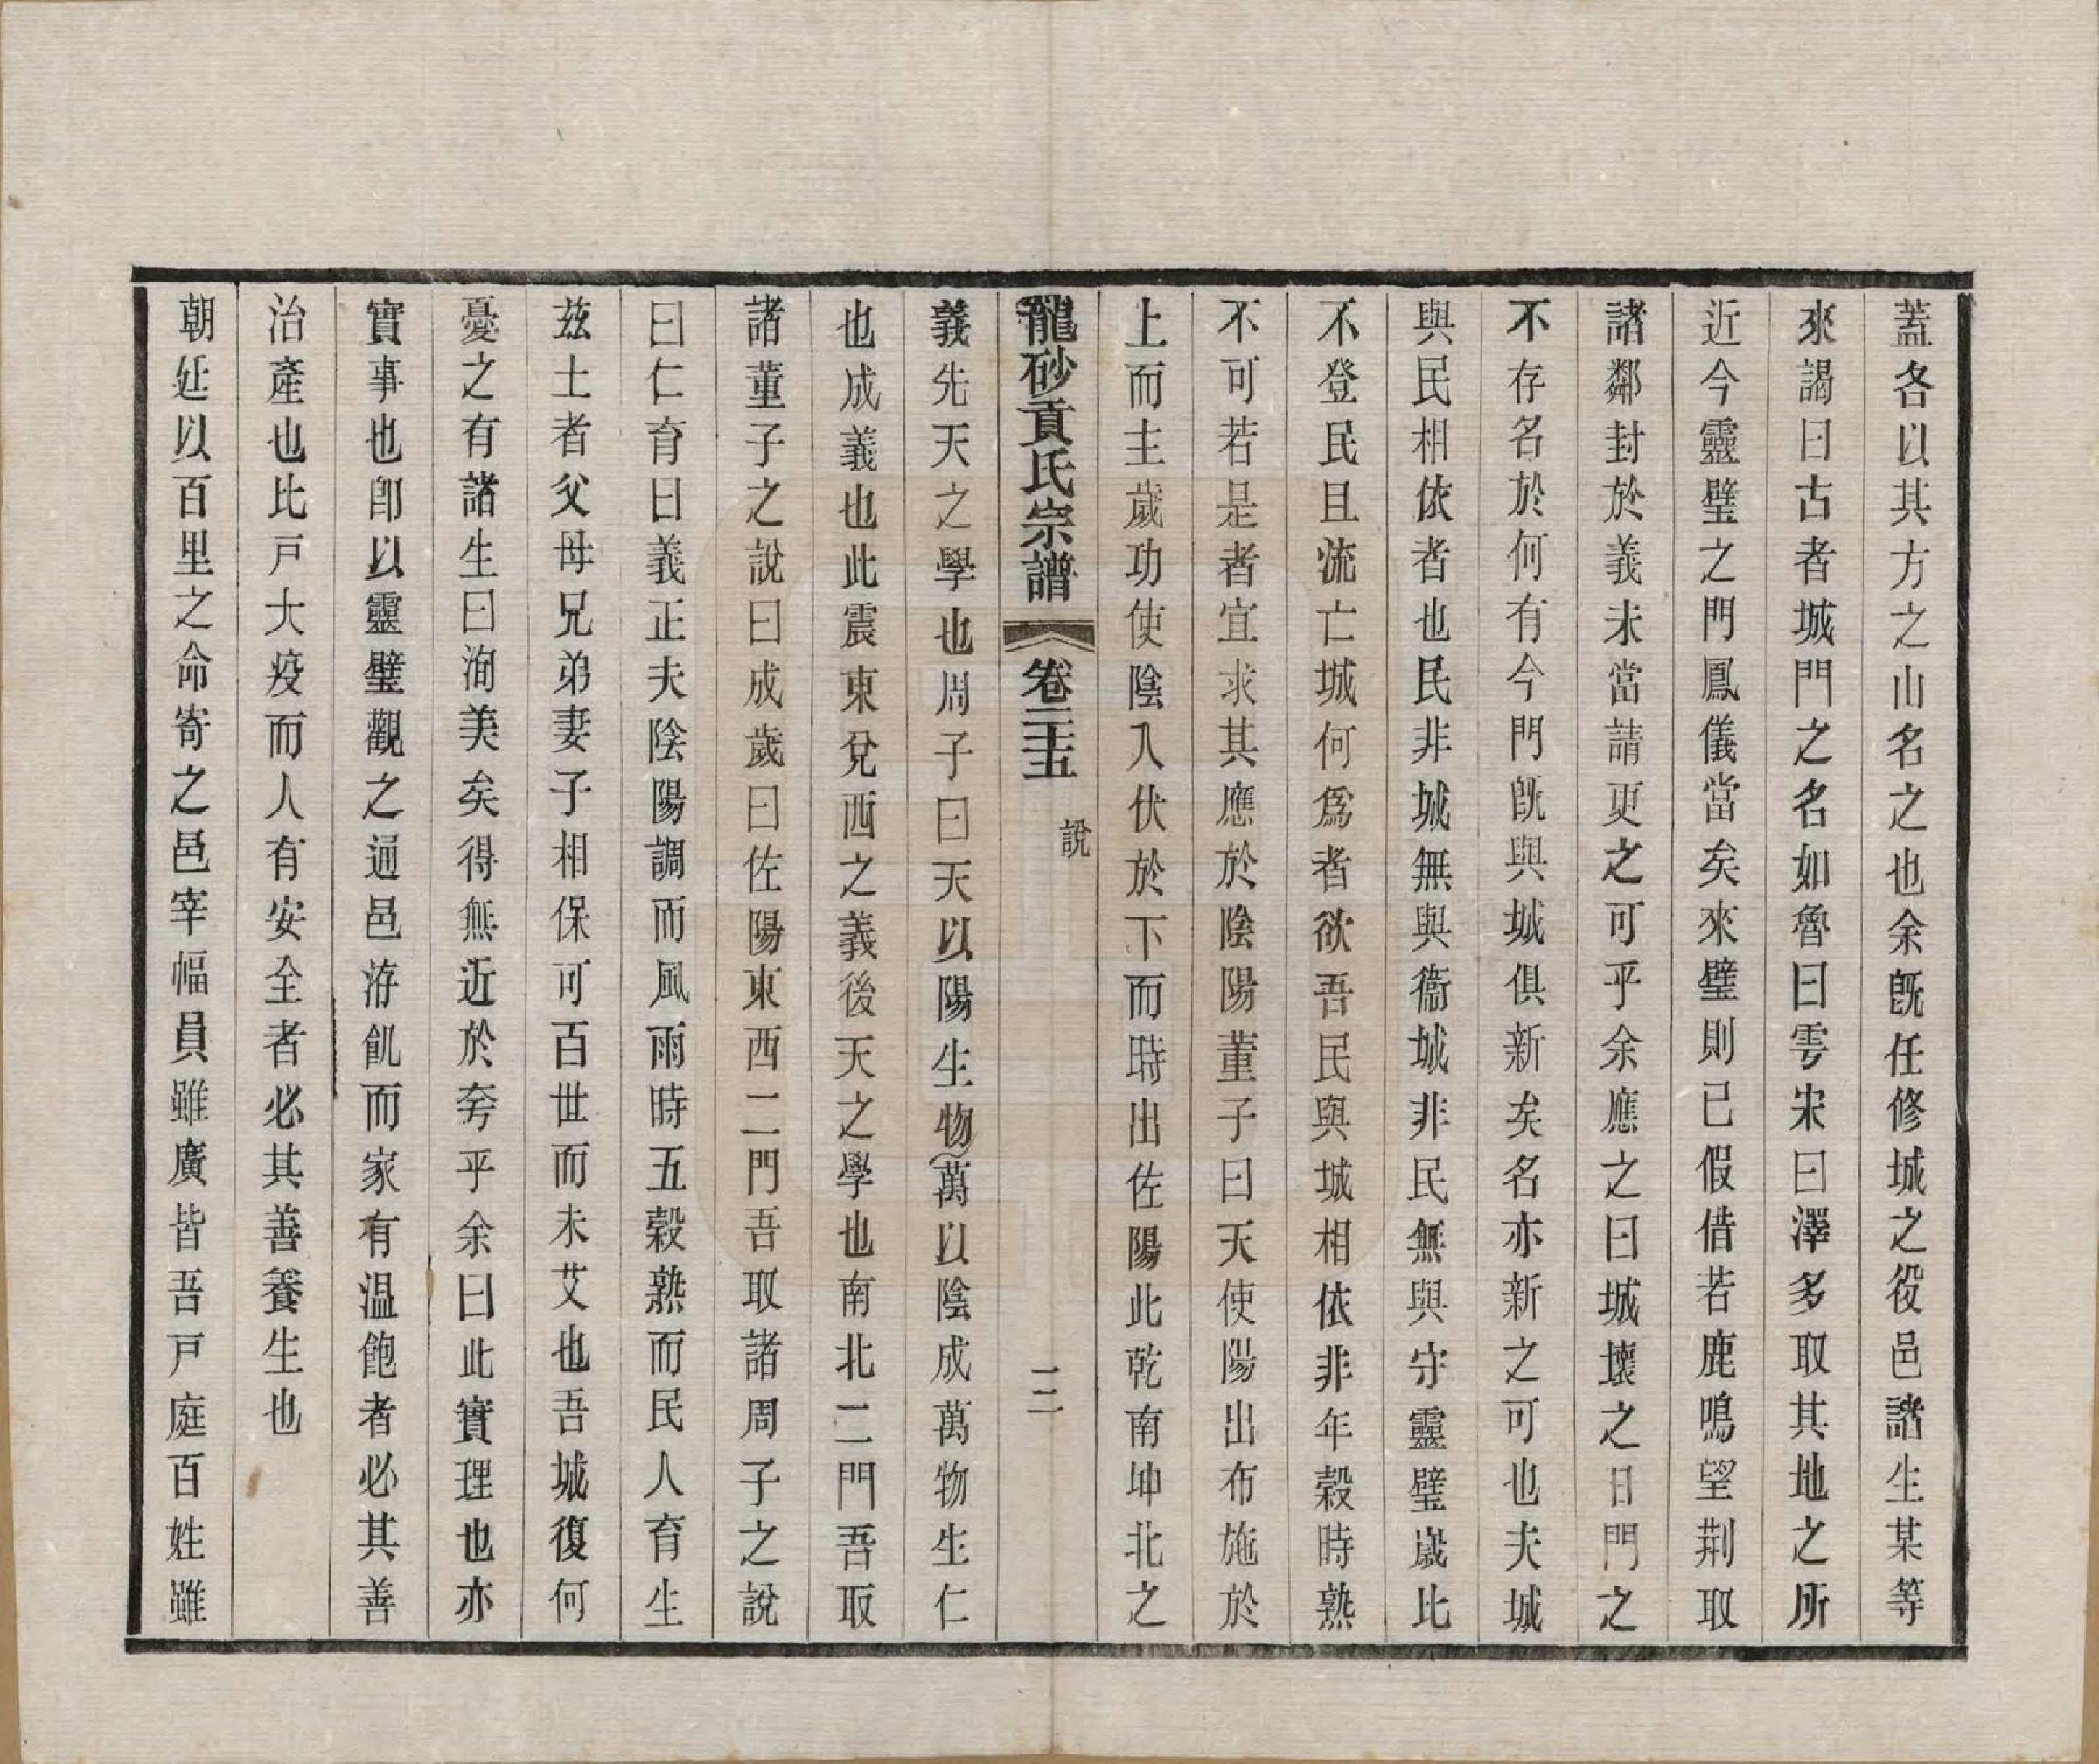 蓋各以其方之山名之也余旣任修城之役邑諸生某等
來謁曰古者城門之名如魯曰雩宋曰澤多取其地之所
近今靈璧之門鳳儀當矣來璧則已假借若鹿鳴望荆取
諸鄰封於義未當請更之可乎余應之曰城壞之日門之
不存名於何有今門旣與城俱新矣名亦新之可也夫城
與民相依者也民非城無與衞城非民無與守靈璧歲比
不登民且流亡城何爲者欲吾民與城相依非年穀時熟
不可若是者宜求其應於陰陽董子曰天使陽出布施於
上而主歲功使陰入伏於下而時出佐陽此乾南坤北之
龍砂貢氏宗譜 卷二十五 說 二
義先天之學也周子曰天以陽生物萬以陰成萬物生仁
也成義也此震東兌西之義後天之學也南北二門吾取
諸董子之說曰成歲曰佐陽東西二門吾取諸周子之說
曰仁育曰義正夫陰陽調而風雨時五穀熟而民人育生
兹土者父母兄弟妻子相保可百世而未艾也吾城復何
憂之有諸生曰洵美矣得無近於夸乎余曰此實理也亦
實事也卽以靈璧觀之通邑游飢而家有温飽者必其善
治產也比戸大疫而人有安全者必其善養生也
朝廷以百里之命寄之邑宰幅員雖廣皆吾戸庭百姓雖